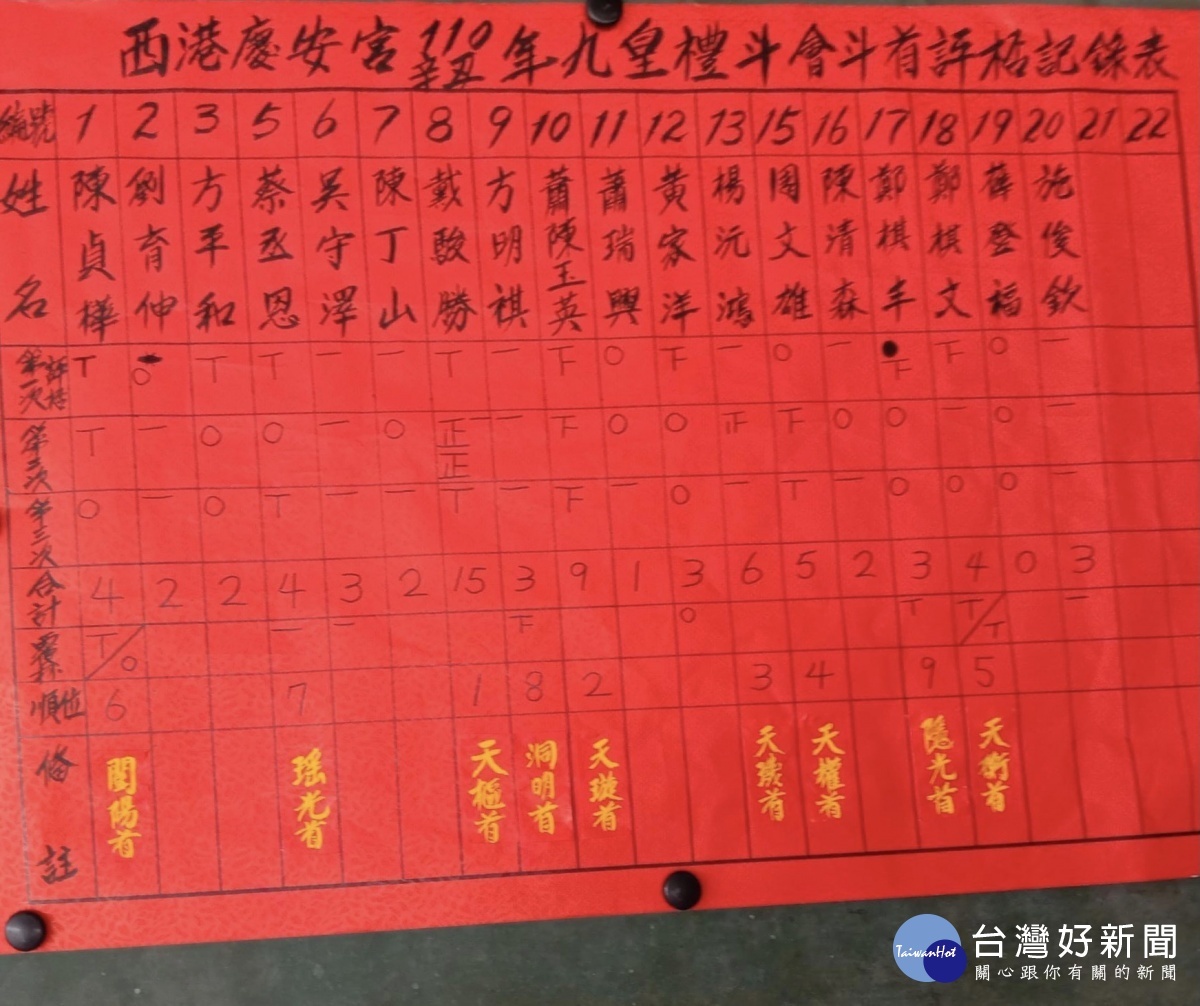 西港慶安宮110辛丑年九皇禮斗會斗首評桮記錄表
編號 1 2 3 5 6 7 8 9 10 11 12 13 15 16 17 18 19 20 21 22
姓名 陳貞樺 劉育伸 方平和 蔡丞恩 吳守澤 陳丁山 戴駿勝 方明祺 蕭陳玉英 蕭瑞興 黃家洋 楊沅鴻 周文雄 陳清森 鄭棋丰 鄭棋文 薛登福 施俊欽
第一次評桮 丅 ○ 丅 丅 一 一 丅 一 下 ○ 下 一 ○ 一 下 下 ○ 一
第二次 丅 一 ○ ○ 一 ○ 正正一 一 下 ○ ○ 正 下 ○ ○ 一 ○ 一
第三次 ○ 一 ○ 丅 一 一 丅 一 下 一 ○ 一 丅 一 ○ ○ ○ 一
合計 4 2 2 4 3 2 15 3 9 1 3 6 5 2 3 4 0 3
丅/○ 一 一 下 ○ 丅 丅/丅 一
順位 6 7 1 8 2 3 4 9 5
備註 開陽首 瑤光首 天樞首 洞明首 天璇首 天璣首 天權首 隱光首 天衡首
TaiwanHot 台灣好新聞
關心跟你有關的新聞